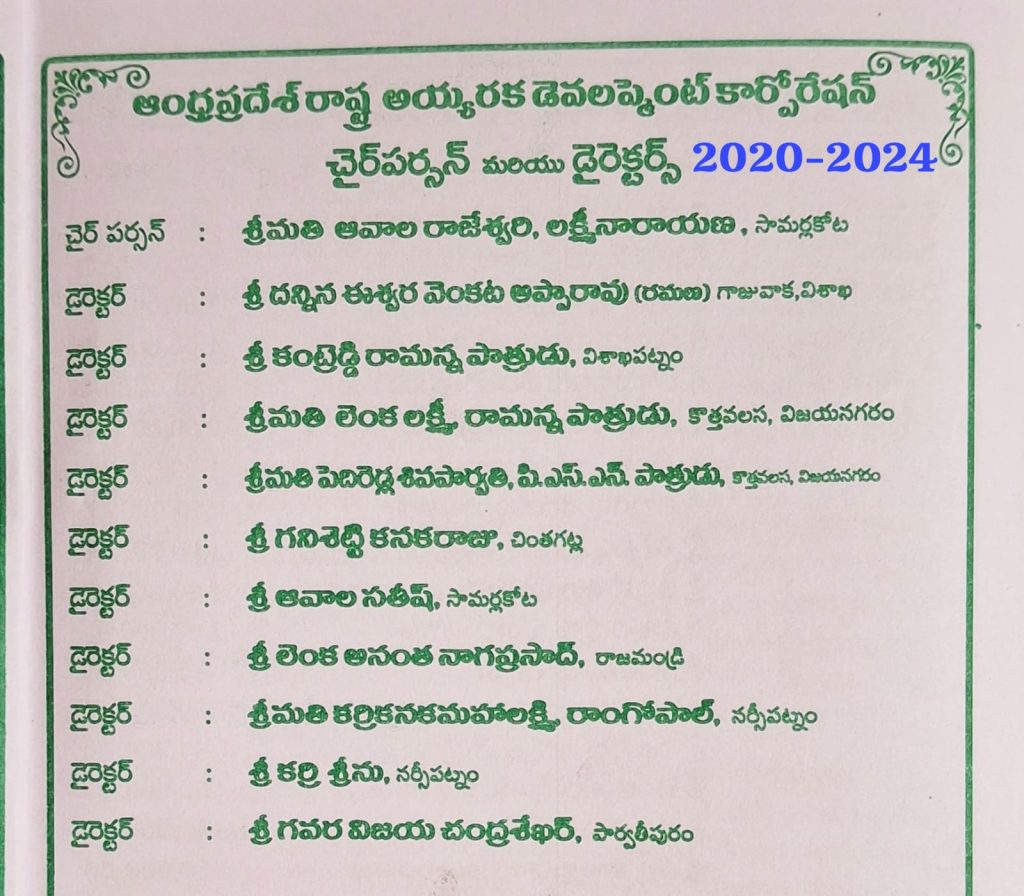 ఆంధ్రప్రదేశ్ రాష్ట్ర అయ్యరక డెవలప్మెంట్ కార్పోరేషన్
చైర్‌పర్సన్ మరియు డైరెక్టర్స్ 2020-2024
చైర్ పర్సన్ : శ్రీమతి ఆవాల రాజేశ్వరి, లక్ష్మీనారాయణ, సామర్లకోట
డైరెక్టర్ : శ్రీ దన్నిన ఈశ్వర వెంకట అప్పారావు (రమణ) గాజువాక,విశాఖ
డైరెక్టర్ : శ్రీ కంట్రెడ్డి రామన్న పాత్రుడు, విశాఖపట్నం
డైరెక్టర్ : శ్రీమతి లెంక లక్ష్మీ, రామన్న పాత్రుడు, కొత్తవలస, విజయనగరం
డైరెక్టర్ : శ్రీమతి పెదిరెడ్ల శివపార్వతి, పి.ఎస్.ఎన్. పాత్రుడు, కొత్తవలస, విజయనగరం
డైరెక్టర్ : శ్రీ గనిశెట్టి కనకరాజు, చింతగట్ల
డైరెక్టర్ : శ్రీ ఆవాల సతీష్, సామర్లకోట
డైరెక్టర్ : శ్రీ లెంక అనంత నాగప్రసాద్, రాజమండ్రి
డైరెక్టర్ : శ్రీమతి కర్రికనకమహాలక్ష్మి, రాంగోపాల్, నర్సీపట్నం
డైరెక్టర్ : శ్రీ కర్రి శ్రీను, నర్సీపట్నం
డైరెక్టర్ : శ్రీ గవర విజయ చంద్రశేఖర్, పార్వతీపురం